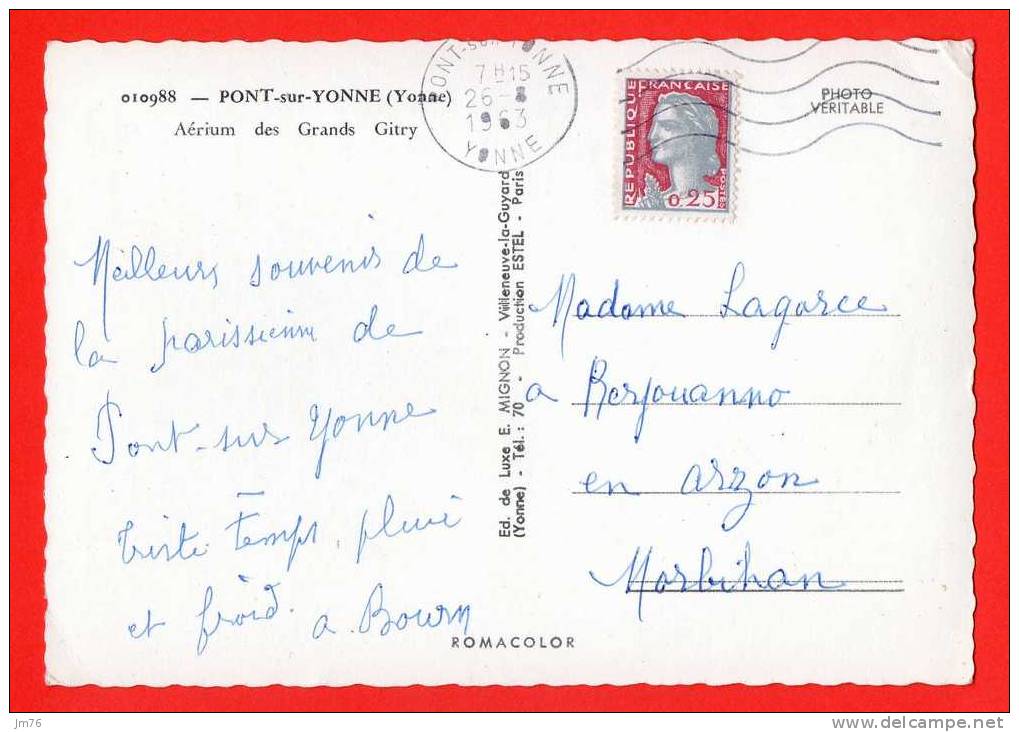 010988 — PONT-sur-YONNE (Yonne)
Aérium des Grands Gitry
PONT-sur-YONNE
7H15
26-8
1963
YONNE
REPUBLIQUE
FRANÇAISE
POSTES
0,25
PHOTO
VERITABLE
Meilleurs souvenirs de
la parissienne de
Pont-sur Yonne
triste temps, pluie
et froid. a Bourn
Ed. de Luxe E. MIGNON - Villeneuve-la-Guyard
(Yonne) - Tél. : 70 - Production ESTEL - Paris
Madame Lagarce
a Kerjouanno
en arzon
Morbihan
ROMACOLOR
jm76
www.delcampe.net